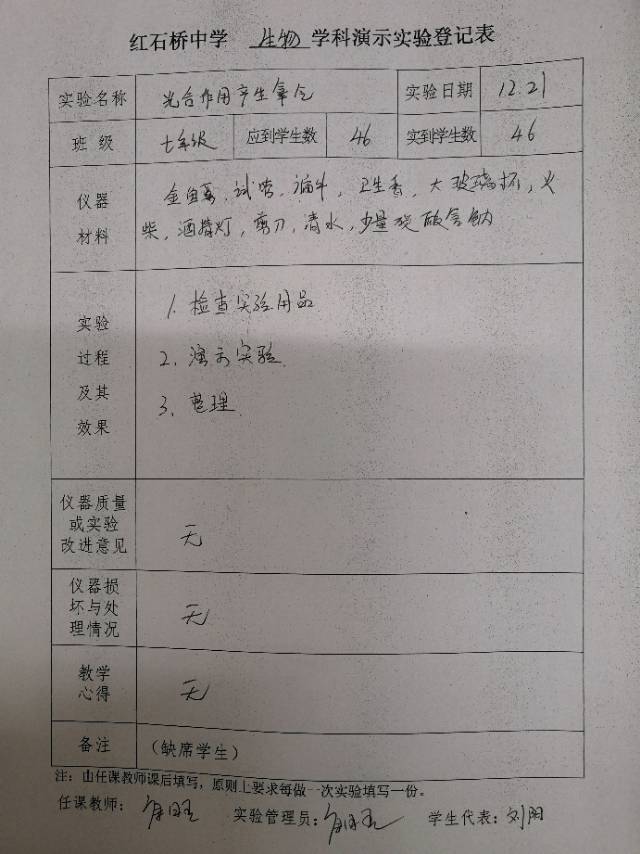 红石桥中学 生物 学科演示实验登记表
实验名称 光合作用产生氧气 实验日期 12.21
班 级 七年级 应到学生数 46 实到学生数 46
仪器 金鱼藻,试管,漏斗,卫生香,大玻璃杯,火
材料 柴,酒精灯,剪刀,清水,少量碳酸氢钠
实验 1、检查实验用品
过程 2、演示实验
及其 3、整理
效果
仪器质量
或实验
改进意见 无
仪器损
坏与处 无
理情况
教学
心得 无
备注 (缺席学生)
注:由任课教师课后填写,原则上要求每做一次实验填写一份。
任课教师: 实验管理员: 学生代表:刘阳